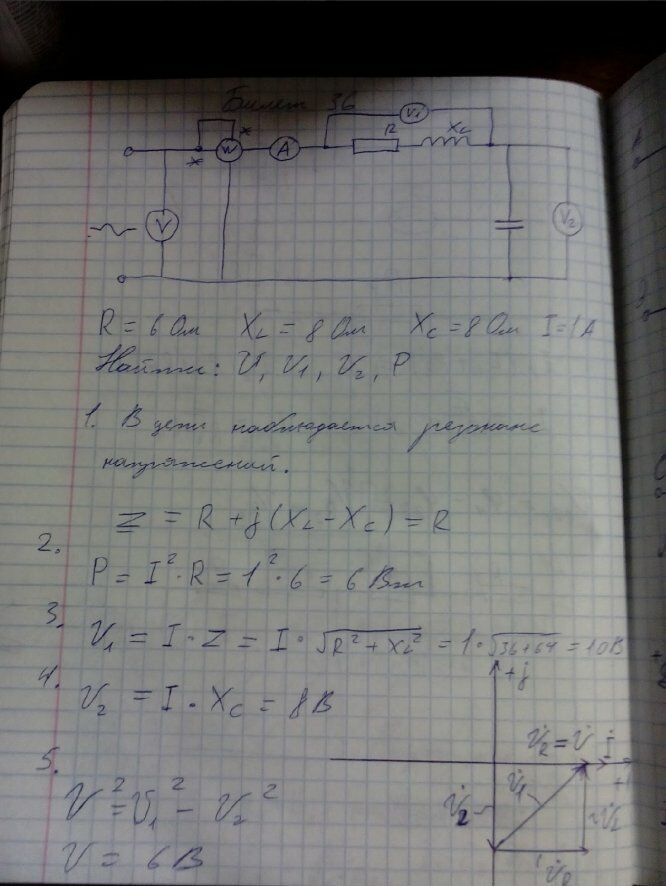 Билет 36
V1
R
XL
*
*
W
A
V
V2
R = 6 Ом XL = 8 Ом XC = 8 Ом I = 1 А
Найти: U, U1, U2, P
1. В цепи наблюдается резонанс
напряжений.
Z = R + j(XL - XC) = R
2.
P = I² · R = 1² · 6 = 6 Вт
3.
U1 = I · Z = I · √(R² + XL²) = 1 · √(36+64) = 10 В
4.
U2 = I · XC = 8 В
+j
U̇R = U̇ İ
+1
5.
U̇1
U̇2
U̇L
U² = U1² - U2²
U = 6 В
U̇R